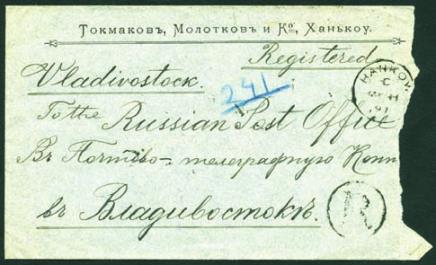 Токмаковъ, Молотковъ и Ко, Ханькоу.
Registered
Vladivostock.
241
HANKOW
C
To the Russian Post Office
Въ Почтово-телеграфную Конт
въ Владивостокъ.
R